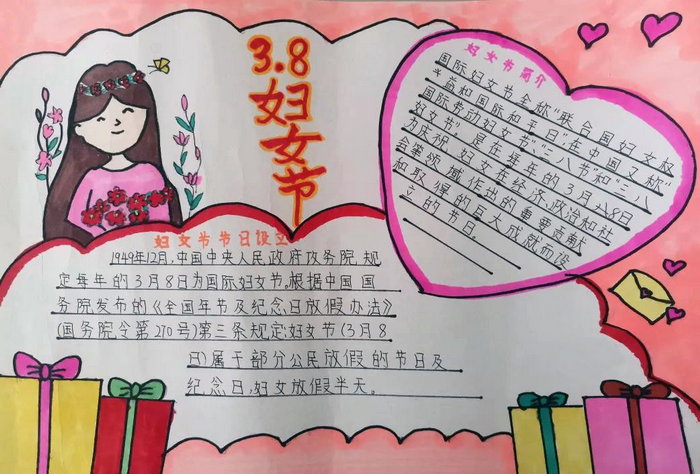 3.8妇女节
妇女节简介
国际妇女节全称“联合国妇女权
益和国际和平日”在中国又称“
国际劳动妇女节”、“三八节”和“三八
妇女节”。是在每年的3月8日
为庆祝妇女在经济、政治和社
会等领域作出的重要贡献
和取得的巨大成就而设
立的节日。
妇女节节日设立
1949年12月,中国中央人民政府政务院,规
定每年的3月8日为国际妇女节,根据中国国
务院发布的《全国年节及纪念日放假办法》
(国务院令第270号)第三条规定:妇女节(3月8
日)属于部分公民放假的节日及
纪念日,妇女放假半天。